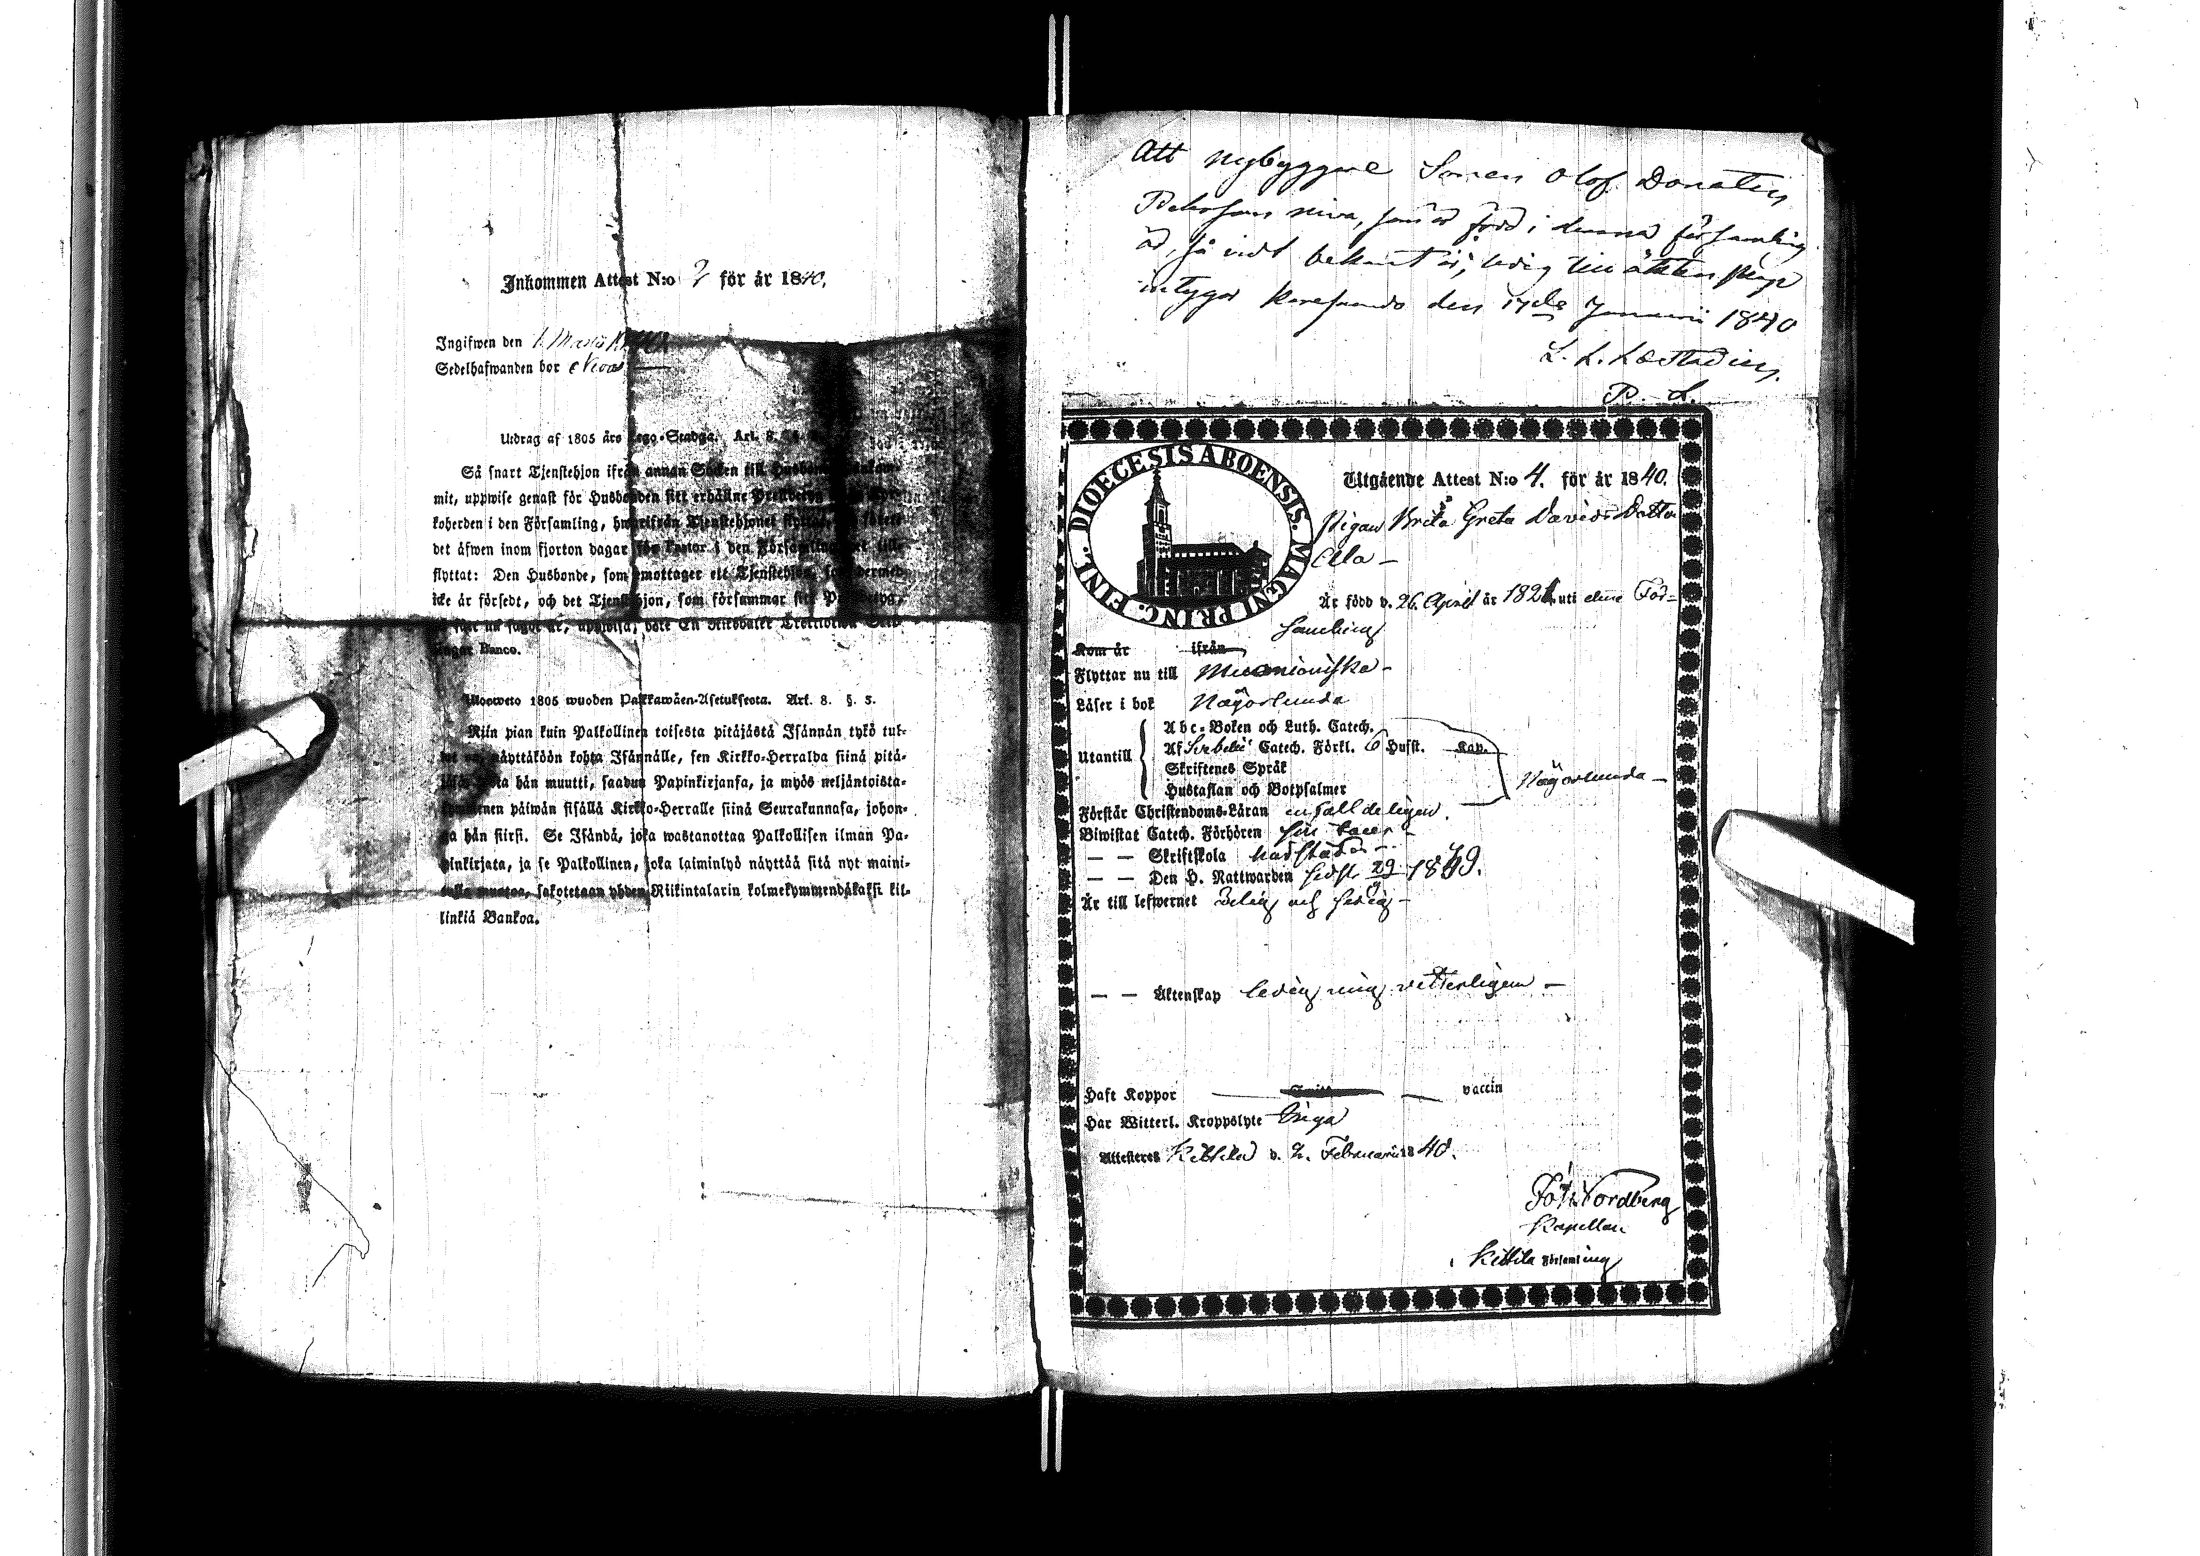 Inkommen Attest N:o 2 för år 1840.
Ingifwen den 1 Martii
Sedelhafwanden bor
Utdrag af 1805 års Lego-Stadga. Art. 8.
Så snart Tjenstehjon ifrån annan Socken till
mit, uppwise genast för Husbonden sitt erhållne
koherden i den Församling, hwarifrån Tjenstehjonet
det äfwen inom fjorton dagar för Pastor i den Församling
flyttat: Den Husbonde, som emottager ett Tjenstehjon,
icke är försedt, och det Tjenstehjon, som försummar sitt
Banco.
Ulosweto 1805 wuoden Palkkawäen-Asetuksesta. Art. 8. §. 3.
Niin pian kuin Palkollinen toisesta pitäjästä Isännän tykö tul-
näyttäköön kohta Isännälle, sen Kirkko-Herralda siinä pitä-
hän muutti, saadun Papinkirjansa, ja myös neljäntoista-
päiwän sisällä Kirkko-Herralle siinä Seurakunnasa, johon-
ga hän siirsi. Se Isändä, joka wastanottaa Palkollisen ilman Pa-
pinkirjata, ja se Palkollinen, joka laiminlyö näyttää sitä nyt maini-
tulla muotoa, sakotetaan yhden Riikintalarin kolmekymmendäkaksi kil-
linkiä Bankoa.
Att nybyggare Sonen Olof Donatus
Pehrsson Niva, som är född i denna församling
är, så vidt bekant är, ledig till äktenskap
intygar Karesuando den 17de Januarii 1840
L. L. Læstadius.
P. L.
DIOECESIS ABOENSIS. MAGNI PRINC. FINL.
Utgående Attest N:o 4. för år 1840.
Pigan Brita Greta Davids Dotter
Är född d. 26 April år 1821 uti denne För-
samling
Kom år ifrån
Flyttar nu till Muonioniska
Läser i bok Någorlunda
Utantill
Abc-Boken och Luth. Catech.
Af Svebelii Catech. Förkl. 6 Hufst. Kap.
Skriftenes Språk
Hustaflan och Botpsalmer
Någorlunda
Förstår Christendoms-Läran enfalldeligen.
Biwistat Catech. Förhören
— — Skriftskola
— — Den H. Nattwarden sidst 29 1839.
Är till lefwernet ärlig och sedig
— — Äktenskap ledig mig vetterligen
Haft Koppor vaccin
Har Witterl. Kroppslyte Inga
Attesteras Kittilä d. 2. Februarii 1840.
Joh. Nordberg
Kapellan
i Kittilä Församling